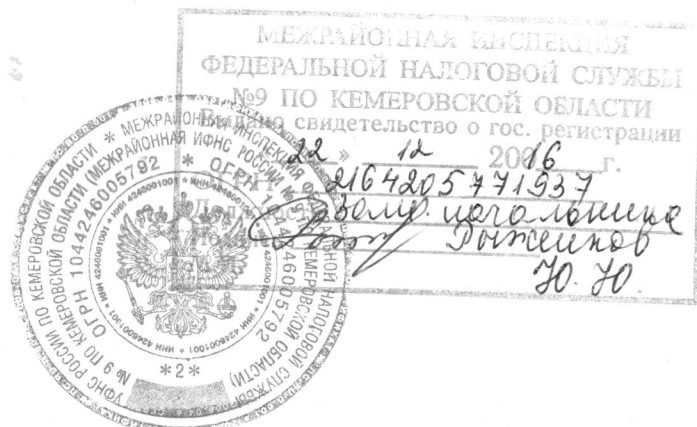 МЕЖРАЙОННАЯ ИНСПЕКЦИЯ
ФЕДЕРАЛЬНОЙ НАЛОГОВОЙ СЛУЖБЫ
№9 ПО КЕМЕРОВСКОЙ ОБЛАСТИ
Выдано свидетельство о гос. регистрации
22 » 12 2016 г.
2164205771937
зам. начальника
Рыжеиков
Ю. Ю.
УФНС РОССИИ ПО КЕМЕРОВСКОЙ ОБЛАСТИ * МЕЖРАЙОННАЯ ИНСПЕКЦИЯ ФЕДЕРАЛЬНОЙ НАЛОГОВОЙ СЛУЖБЫ
№ 9 ПО КЕМЕРОВСКОЙ ОБЛАСТИ (МЕЖРАЙОННАЯ ИФНС РОССИИ № 9 ПО КЕМЕРОВСКОЙ ОБЛАСТИ)
ОГРН 1044246005792 * ОГРН 1044246005792
ИНН 4246001001 * ИНН 4246001001 * ИНН 4246001001 * ИНН 4246001001
*2*